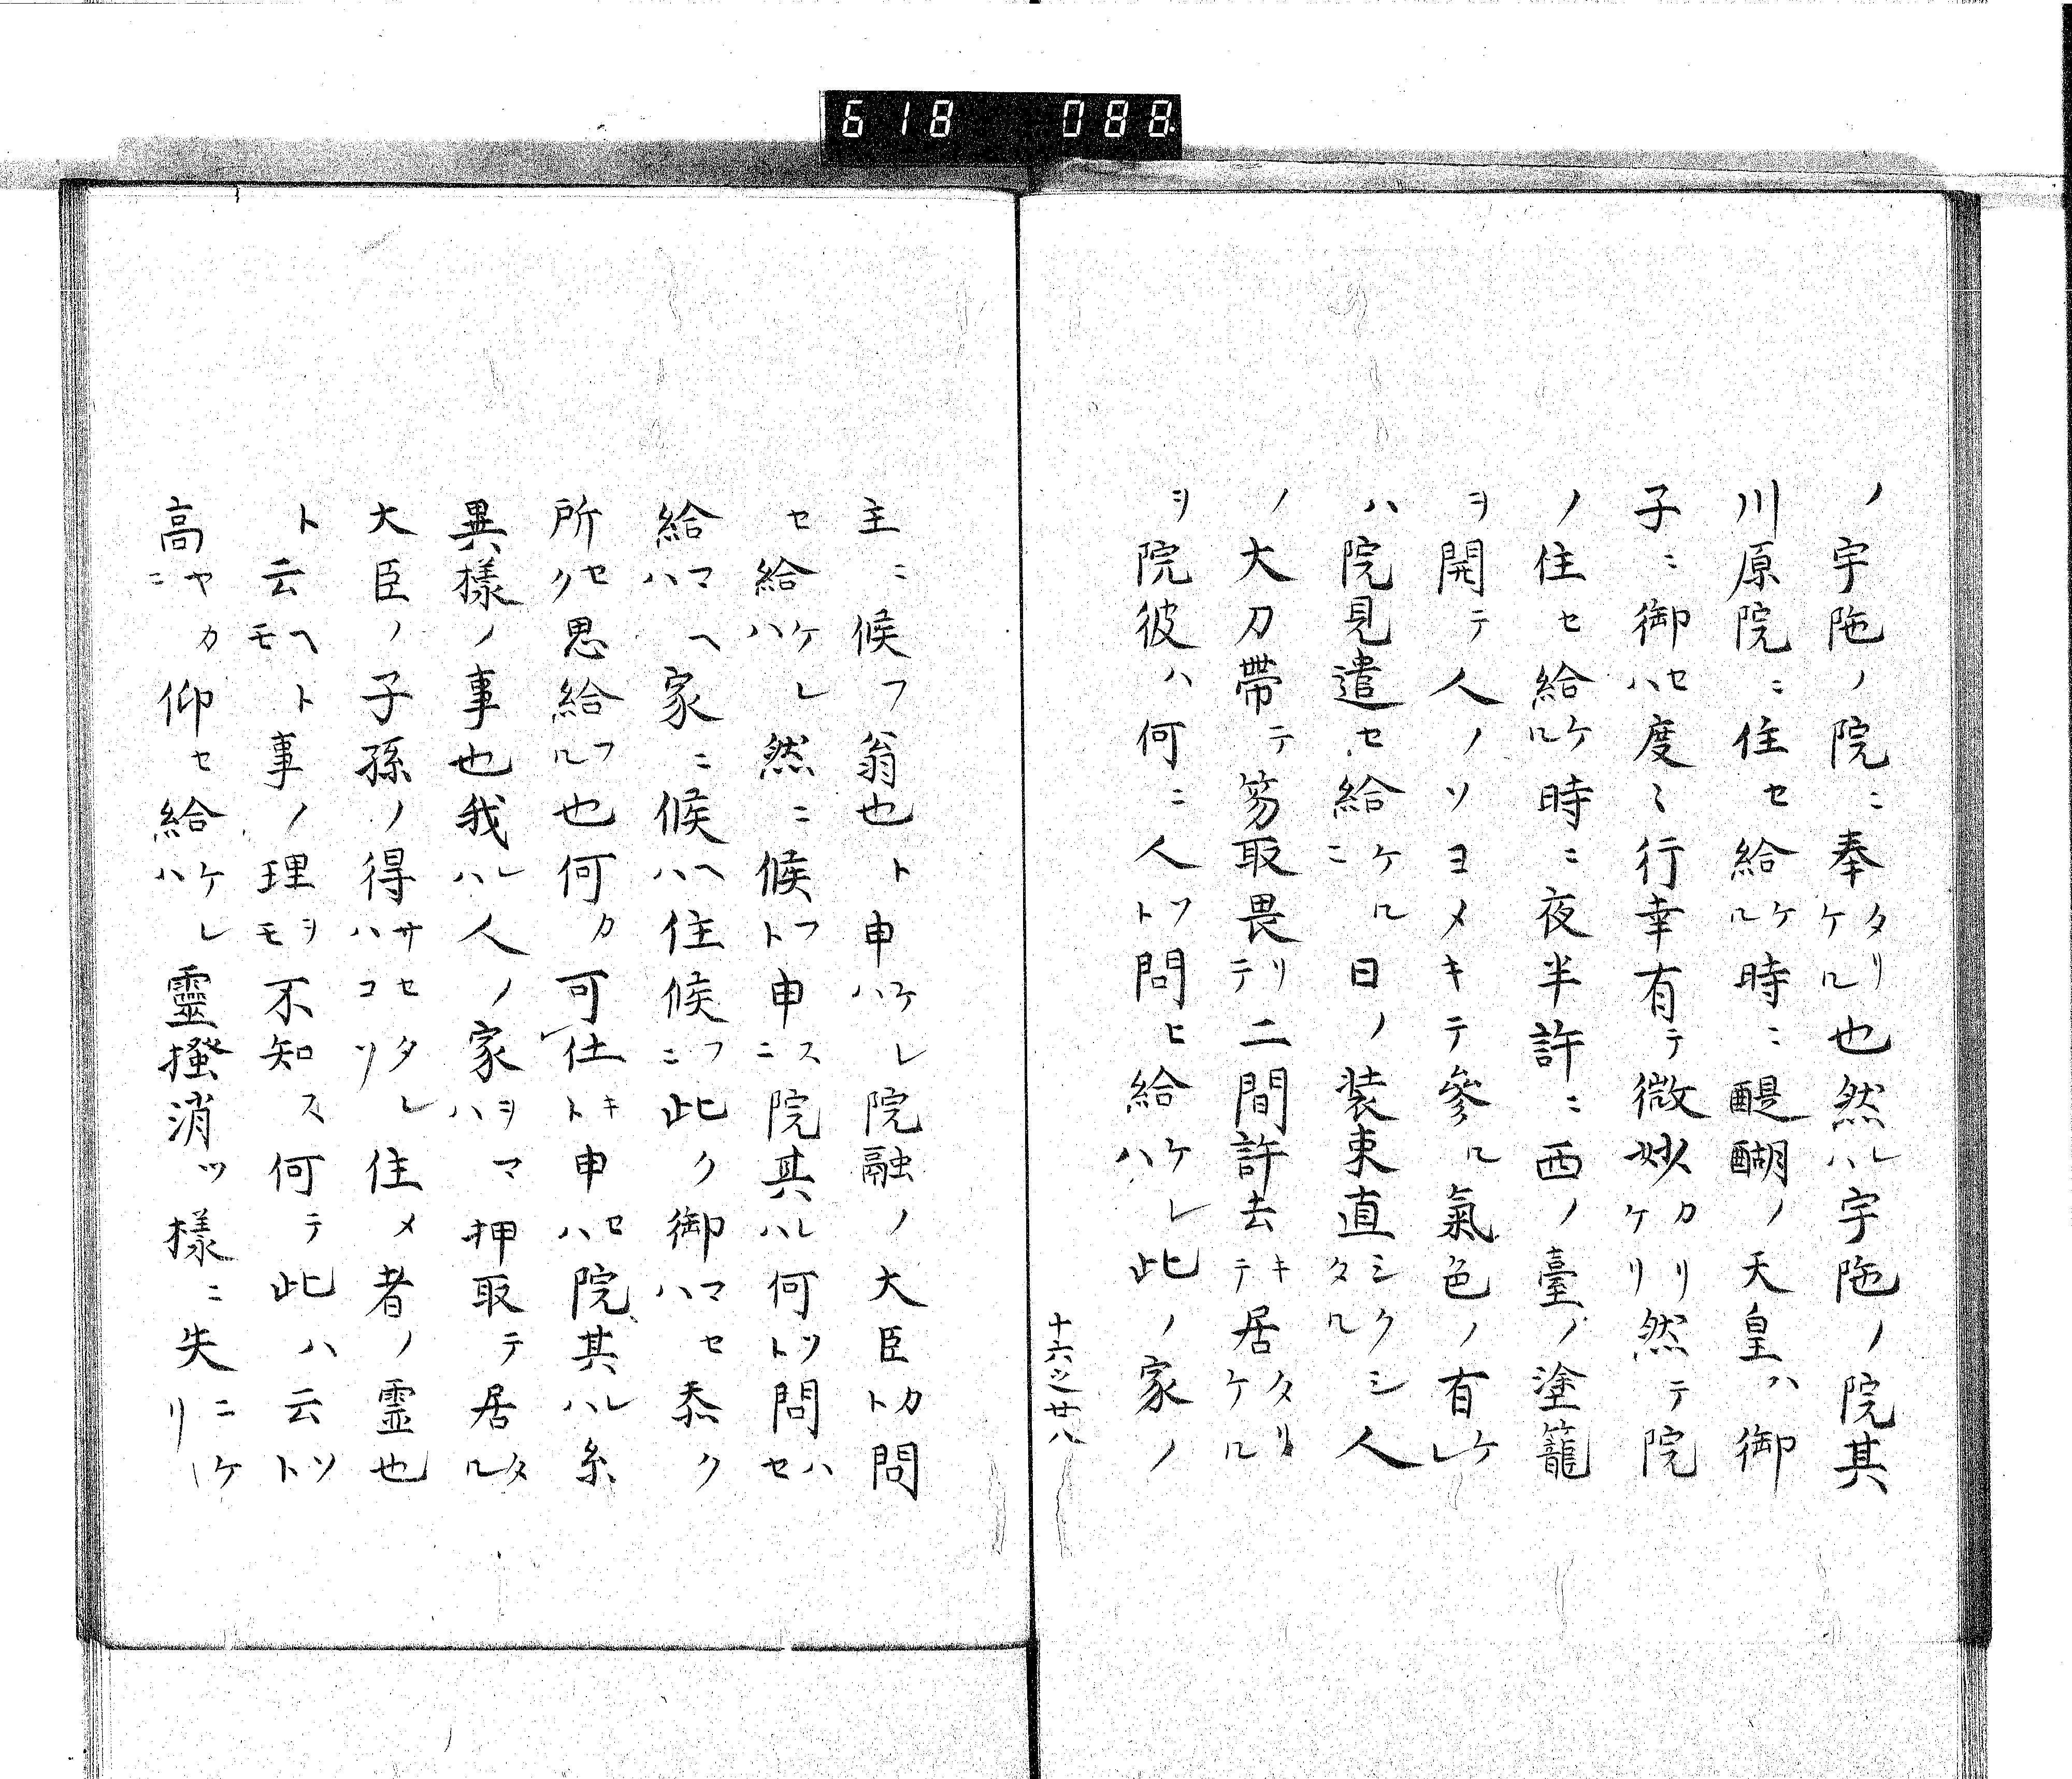 618 088
ノ宇陁ノ院ニ奉タリケル也然レハ宇陁ノ院其
川原院ニ住セ給ケル時ニ醍醐ノ天皇ハ御
子ニ御セハ度〻行幸有テ微妙カリケリ然テ院
ノ住セ給ケル時ニ夜半許ニ西ノ臺ノ塗籠
ヲ開テ人ノソヨメキテ參ル氣色ノ有ケレ
ハ院見遣セ給ケルニ日ノ装束直シクシタル人
ノ大刀帶テ笏取畏リテ二間許去キテ居タリケル
ヲ院彼ハ何ニ人ソト問ヒ給ケレハ此ノ家ノ
十六之廿八
主ニ候フ翁也ト申ケレハ院融ノ大臣カト問
セ給ケレハ然ニ候フト申スニ院其レハ何ソト問ハセ
給マヘハ家ニ候ヘハ住候フニ此ク御マセハ忝ク
所セク思給フル也何カ可仕キト申セハ院其レハ糸
異樣ノ事也我レハ人ノ家ヲハマ押取テ居タル
大臣ノ子孫ノ得サセタレハコソ住メ者ノ霊也
ト云ヘトモ事ノ理ヲモ不知ス何テ此ハ云ソト
高ヤカニ仰セ給ケレハ靈搔消ツ樣ニ失ニケリ